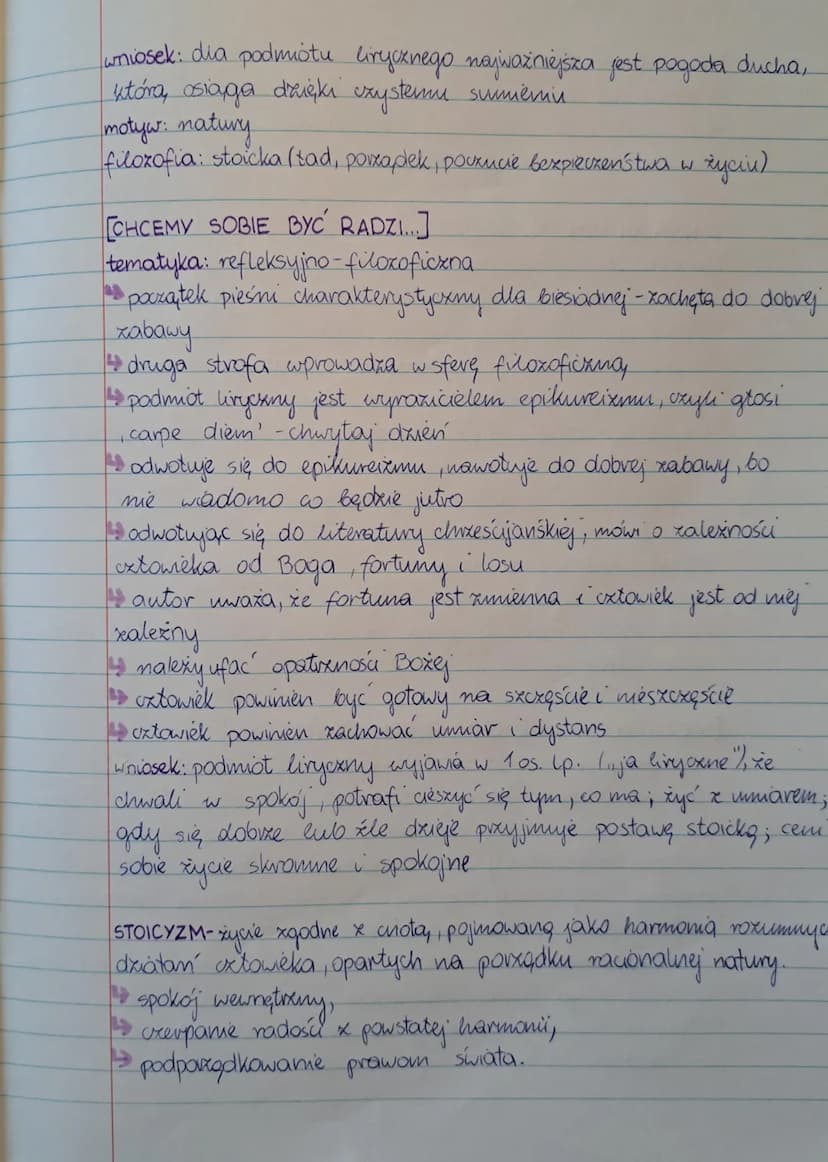 wniosek: dla podmiotu lirycznego najważniejsza jest pogoda ducha,
którą osiąga dzięki czystemu sumieniu
motyw: natury
filozofia: stoicka (ład, porządek, poczucie bezpieczeństwa w życiu)
[CHCEMY SOBIE BYĆ RADZI...]
tematyka: refleksyjno-filozoficzna
↳ początek pieśni charakterystyczny dla biesiadnej - zachęta do dobrej
zabawy
↳ druga strofa wprowadza w sferę filozoficzną
↳ podmiot liryczny jest wyrazicielem epikureizmu, czyli głosi
,carpe diem' - chwytaj dzień
↳ odwołuje się do epikureizmu, nawołuje do dobrej zabawy, bo
nie wiadomo co będzie jutro
↳ odwołując się do literatury chrześcijańskiej, mówi o zależności
człowieka od Boga, fortuny i losu
↳ autor uważa, że fortuna jest zmienna i człowiek jest od niej
zależny
↳ należy ufać opatrzności Bożej
↳ człowiek powinien być gotowy na szczęście i nieszczęście
↳ człowiek powinien zachować umiar i dystans
wniosek: podmiot liryczny wyjawia w 1 os. lp. („ja liryczne"), że
chwali w spokój, potrafi cieszyć się tym, co ma; żyć z umiarem;
gdy się dobrze lub źle dzieje przyjmuje postawę stoicką; ceni
sobie życie skromne i spokojne
STOICYZM - życie zgodne z cnotą, pojmowaną jako harmonia rozumnyc
działań człowieka, opartych na porządku racjonalnej natury.
↳ spokój wewnętrzny,
↳ czerpanie radości z powstałej harmonii,
↳ podporządkowanie prawom świata.